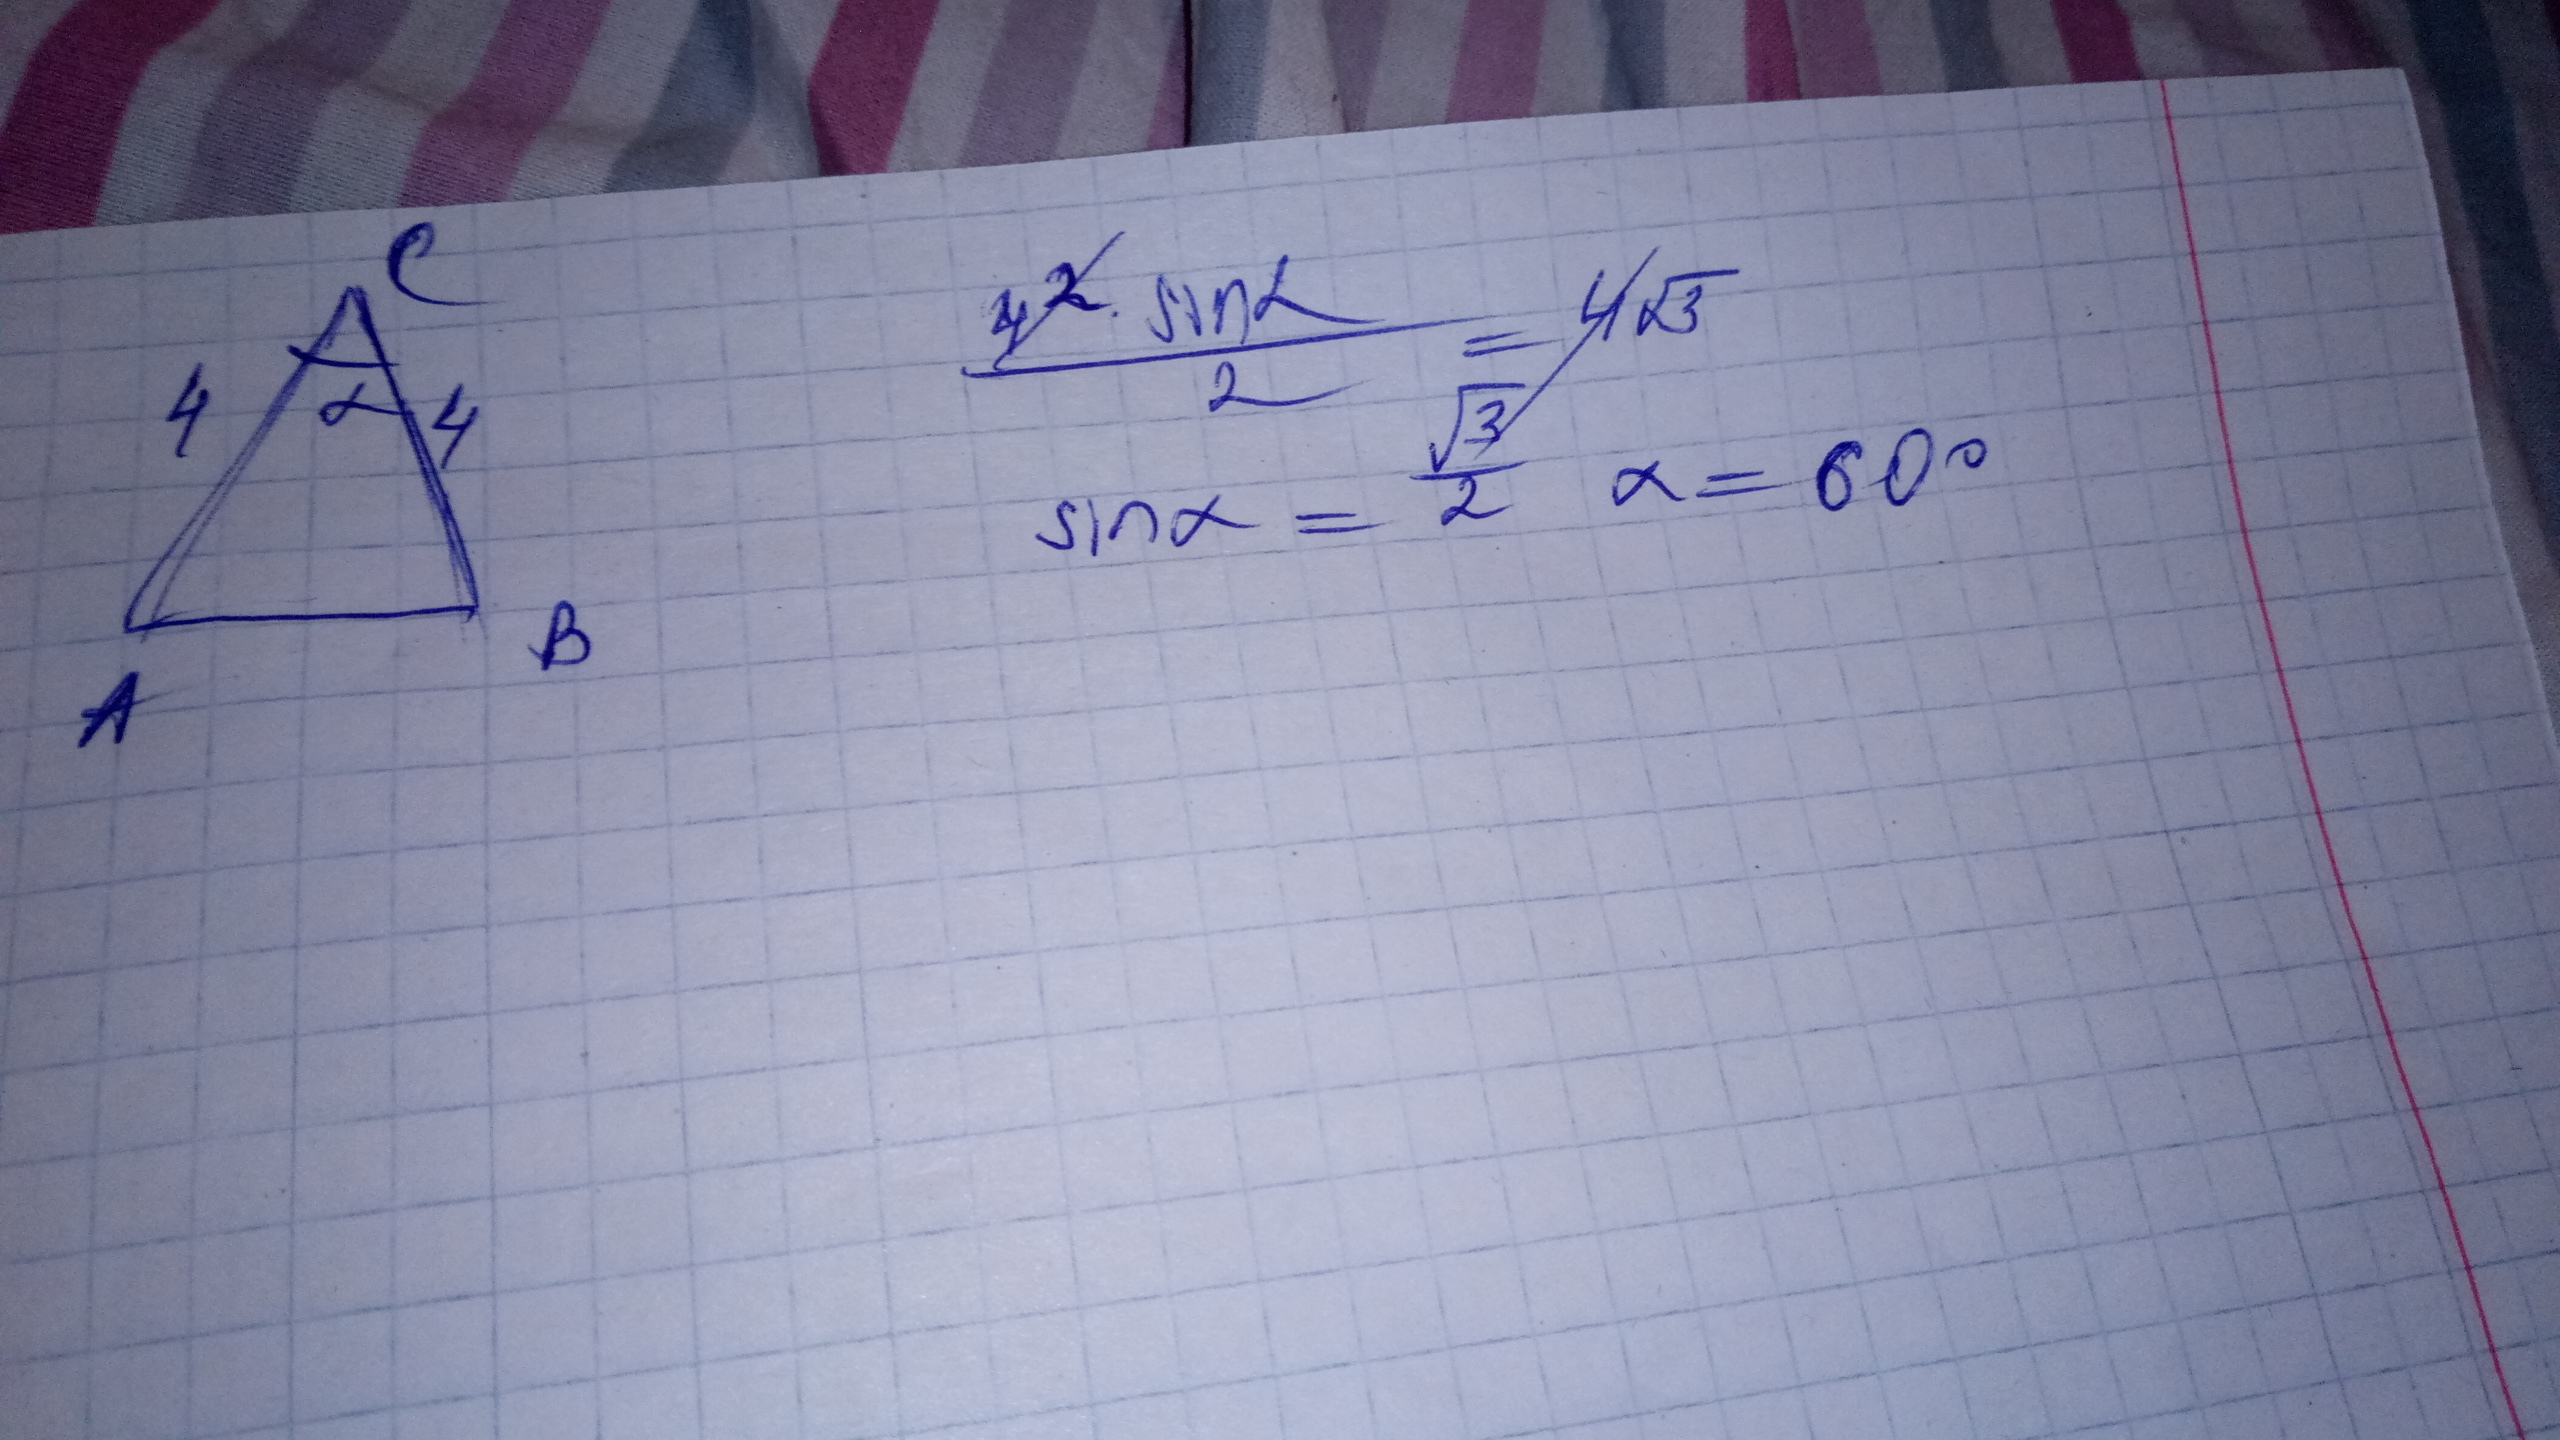 C
4
α
4
A
B
4² · sinα / 2 = 4√3
sinα = √3/2 α = 60°